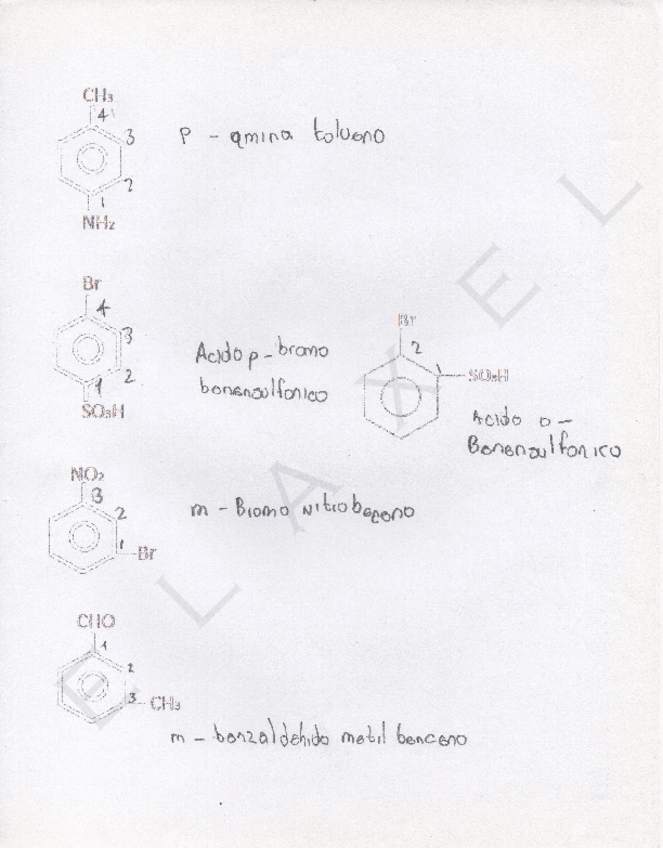 CH₃
4
3
2
1
NH₂
p - amina tolueno
Br
4
3
2
1
SO₃H
Acido p-bromo
benensulfonico
Br
2
1
SO₃H
Acido o-
Benensulfonico
NO₂
3
2
1
Br
m - Bromo nitrobeceno
CHO
1
2
3
CH₃
m - benzaldehido metil benceno
E L A X E L